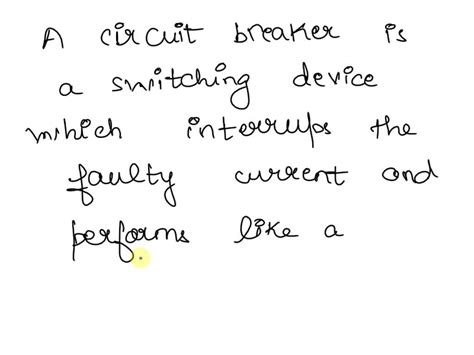 A circuit breaker is
a switching device
which interrups the
faulty current and
performs like a